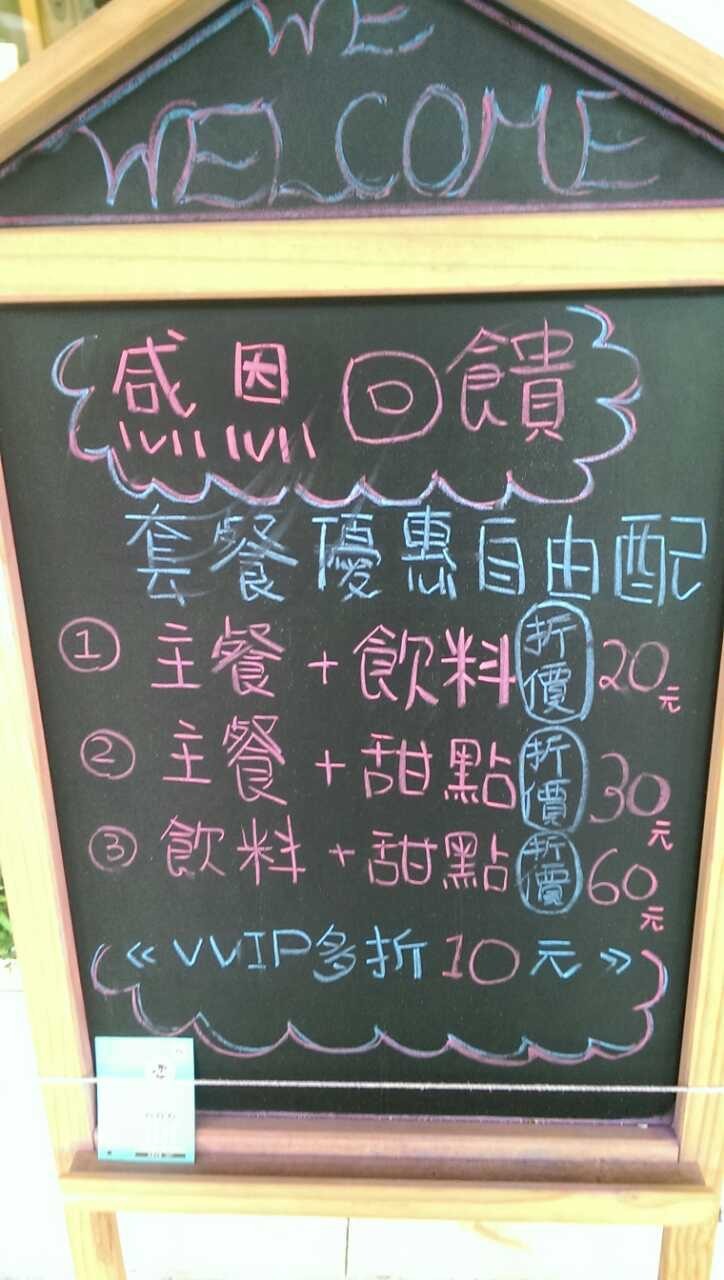 WE
WELCOME
感恩回饋
套餐優惠自由配
① 主餐+飲料 折價 20元
② 主餐+甜點 折價 30元
③ 飲料+甜點 折價 60元
《VVIP多折10元》